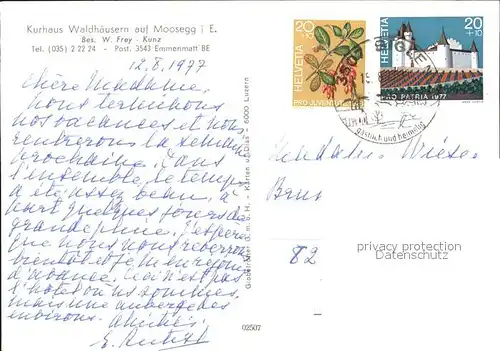 Kurhaus Waldhäusern auf Moosegg i E.
Bes. W. Frey - Kunz
Tel. (035) 2 22 24 - Post. 3543 Emmenmatt BE
12.8.1977
Chère Madame,
Nous terminons
nos vacances et nous
rentrerons la semaine
prochaine. Dans
l'ensemble, le temps
a été assez beau, à
part quelques jours de
grande pluie. J'espère
que nous nous reverrons
bientôt et je m'en réjouis
d'avance. Ceci n'est pas
l'hôtel où nous sommes,
mais une auberge des
environs.
Amitiés,
E.
Globetrotter G.m.b.H. - Karten und Dias - 6000 Luzern
02507
HELVETIA
20
+10
PRO JUVENTUTE
HELVETIA
20
+10
PRO PATRIA 1977
gastlich und heimelig
Madame
Bern
82
privacy protection
Datenschutz